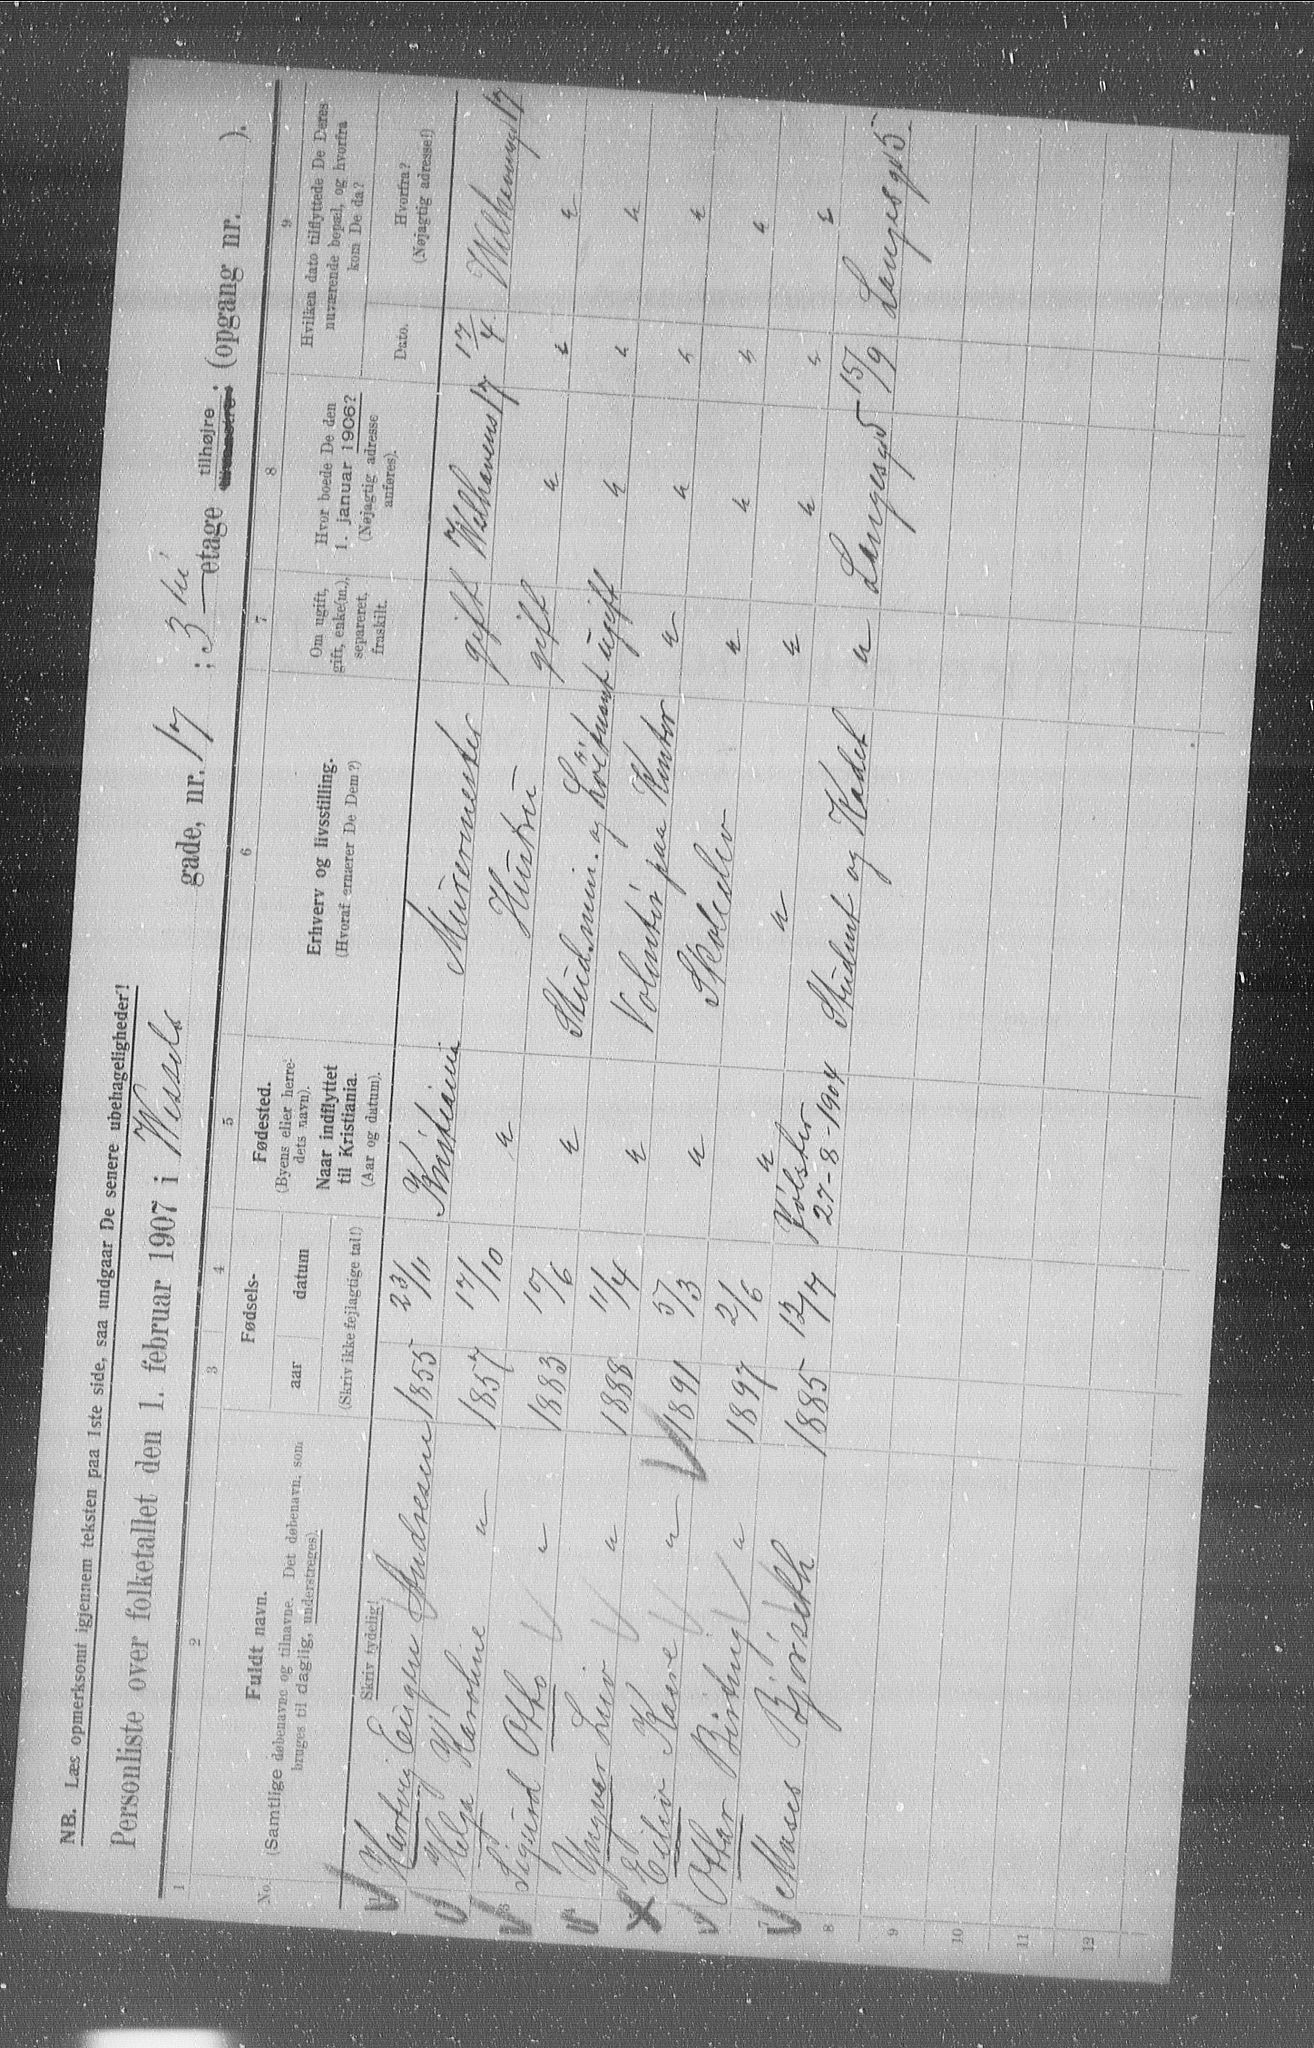 NB. Læs opmerksomt igjennem teksten paa 1ste side, saa undgaar De senere ubehageligheder!
Personliste over folketallet den 1. februar 1907 i Wessels gade, nr. 17 ; 3die etage tilhøjre (opgang nr. ).
1 2 3 4 5 6 7 8 9
No. Fuldt navn. (Samtlige døbenavne og tilnavne. Det døbenavn, som bruges til daglig, understreges). Skriv tydelig!
Fødsels- aar datum (Skriv ikke fejlagtige tal!)
Fødested. (Byens eller herredets navn). Naar indflyttet til Kristiania. (Aar og datum).
Erhverv og livsstilling. (Hvoraf ernærer De Dem?)
Om ugift, gift, enke(m.), separeret, fraskilt.
Hvor boede De den 1. januar 1906? (Nøjagtig adresse anføres).
Hvilken dato tilflyttede De Deres nuværende bopæl, og hvorfra kom De da?
Dato. Hvorfra? (Nøjagtig adresse!)
1 Hartvig Eugen Andresen 1855 23/11 Kristiania Murermester gift Welhavens 17 17/4 Welhavensgd 17
2 Helga Karoline " 1857 17/10 " Hustru gift " " "
3 Sigurd Otto " 1883 10/6 " Stud. min. og Löitnant ugift " " "
4 Yngvar Luiv " 1888 11/4 " Volentör paa Kontor " " " "
5 Eiliv Kaare " 1891 5/3 " Skoleelev " " " "
6 Ottar Birting " 1897 2/6 " " " " " "
7 Moses Bjørseth 1885 12/7 Jölster 27-8-1904 Student og Kadet " Langesgd 5 15/9 Langesgd 5
8
9
10
11
12